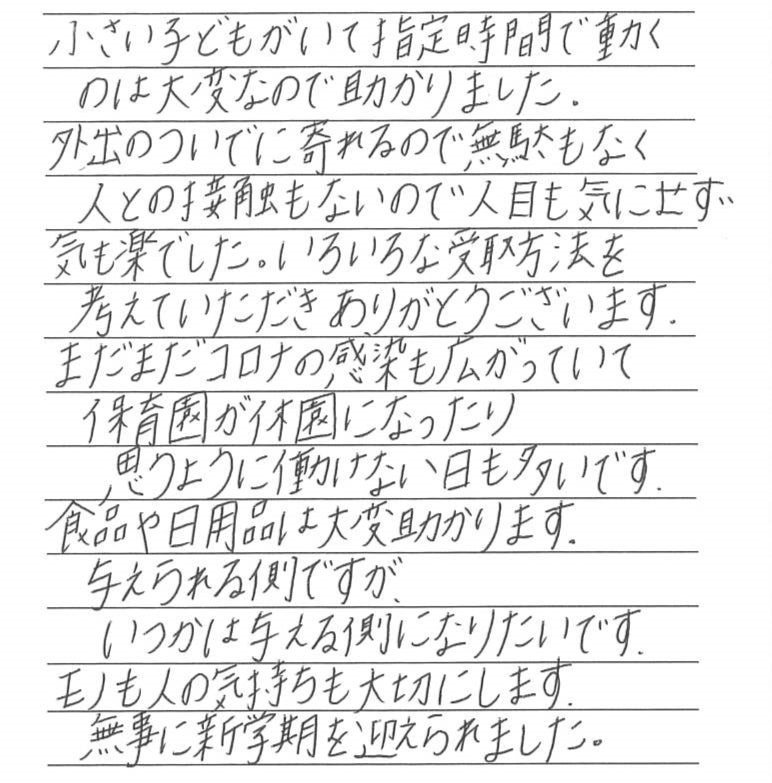 小さい子どもがいて指定時間で動く
のは大変なので助かりました。
外出のついでに寄れるので無駄もなく
人との接触もないので人目も気にせず
気も楽でした。いろいろな受取方法を
考えていただきありがとうございます。
まだまだコロナの感染も広がっていて
保育園が休園になったり
思うように働けない日も多いです。
食品や日用品は大変助かります。
与えられる側ですが、
いつかは与える側になりたいです。
モノも人の気持ちも大切にします。
無事に新学期を迎えられました。